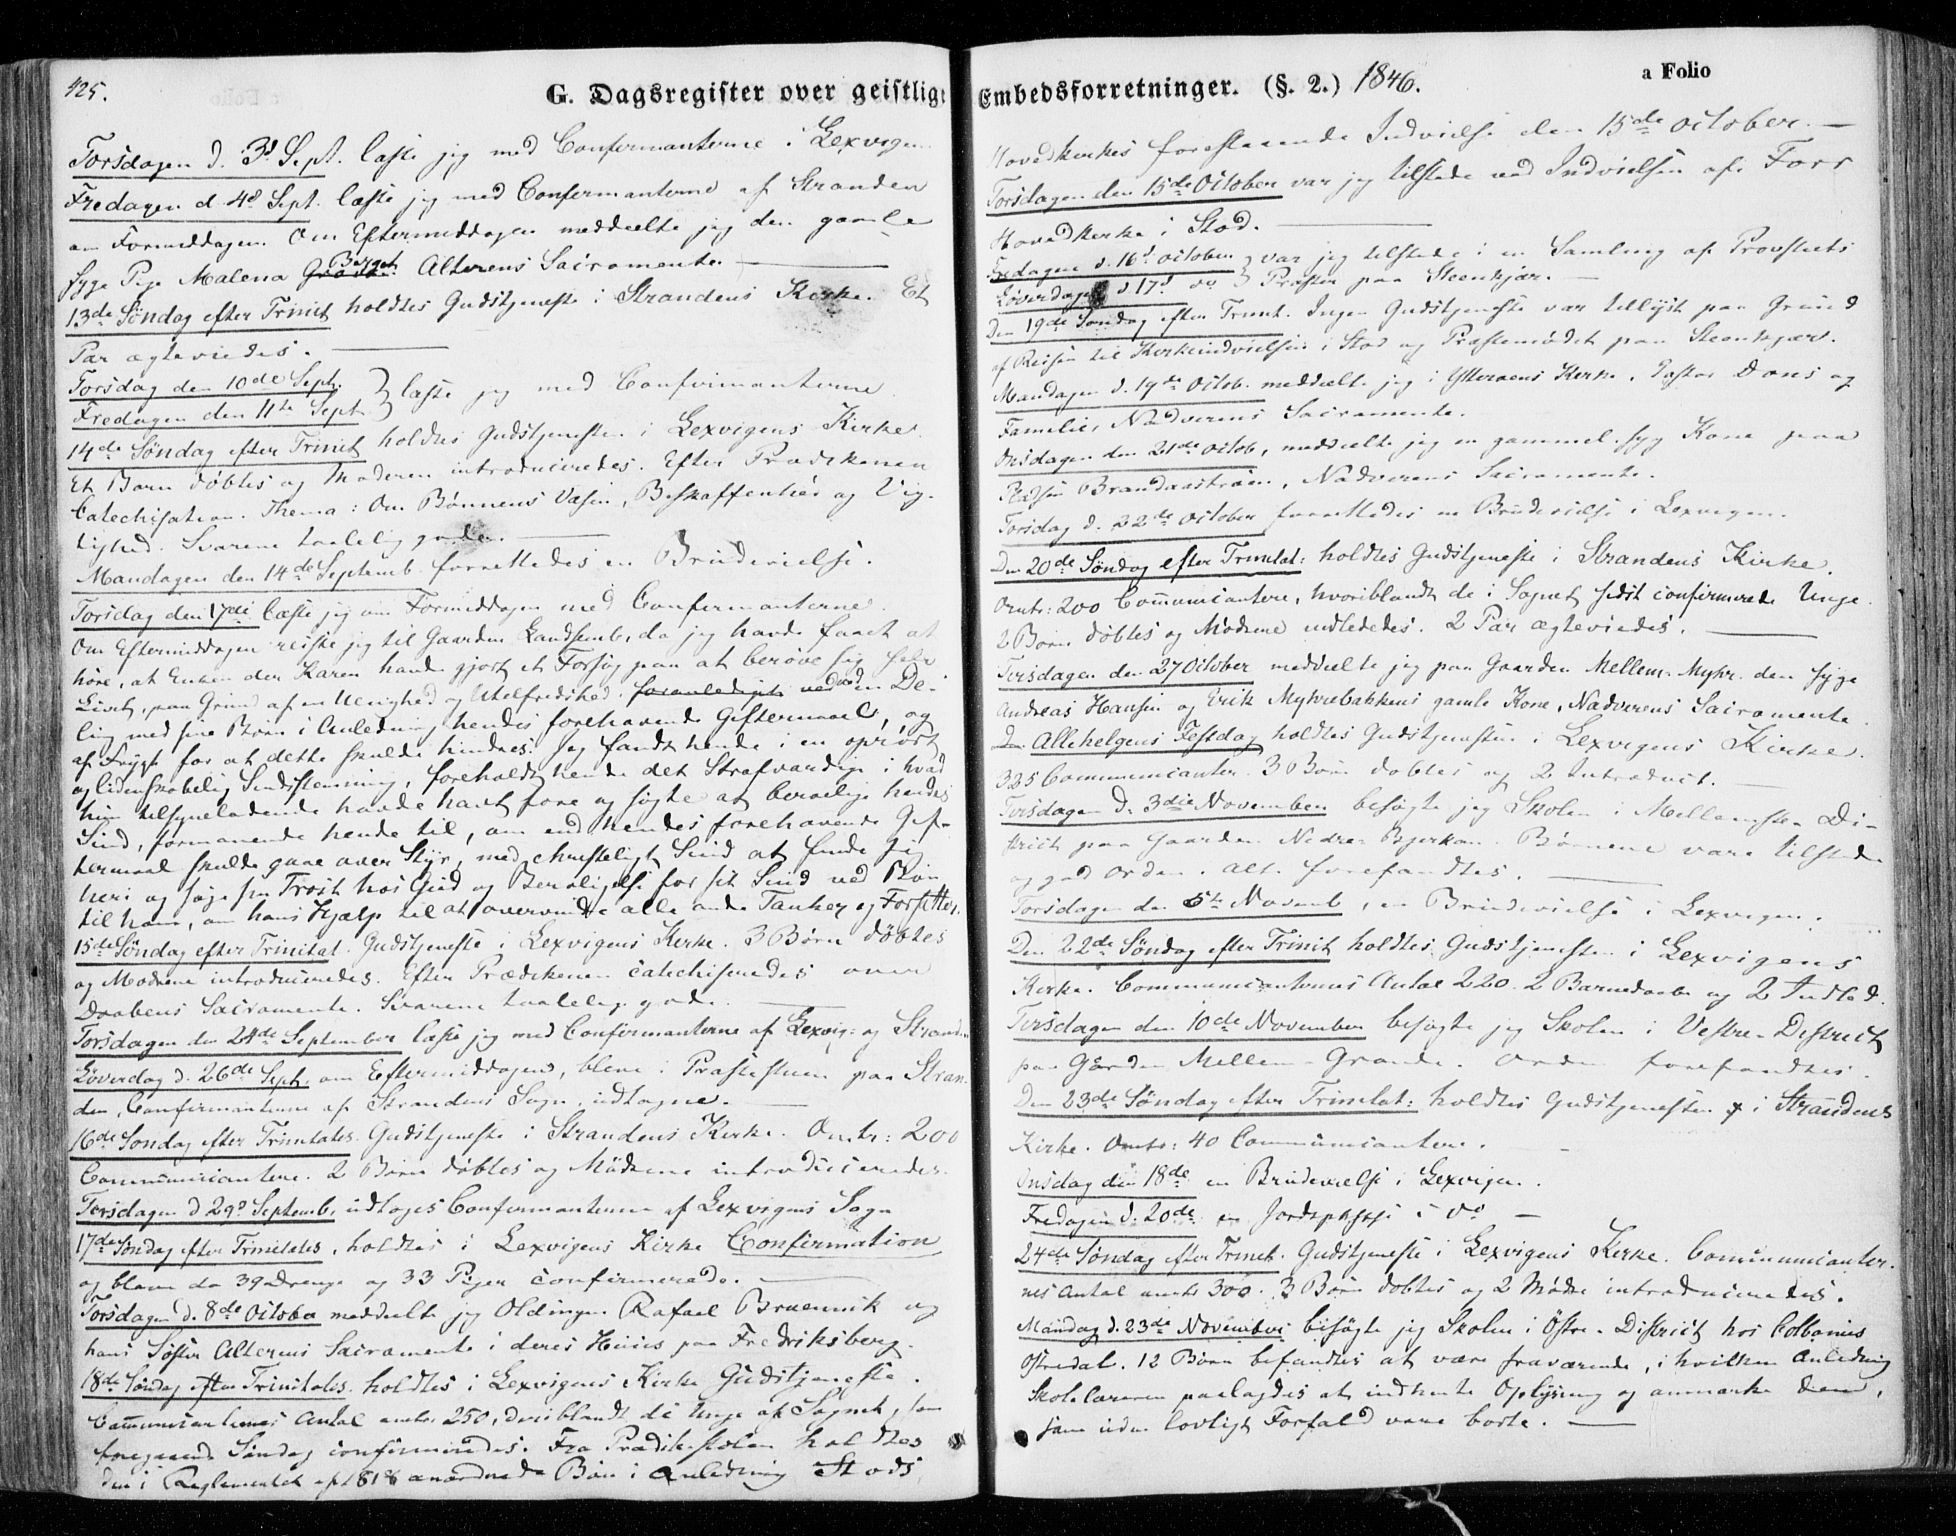 425.
G. Dagsregister over geistlige Embedsforretninger. (§. 2.) 1846.
a Folio
Torsdagen d. 3d Sept. læste jeg med Confirmanterne i Lexvigen.
Fredagen d 4d Sept. læste jeg med Confirmanterne af Stranden
om Formiddagen. Om Eftermiddagen meddeelte jeg den gamle
syge Pige Malena Berget Alterens Sacramente.
13de Søndag efter Trinit holdtes Gudstjeneste i Strandens Kirke. Et
Par ægteviedes.
Torsdag den 10de Sept.
Fredagen den 11te Sept } læste jeg med Confirmanterne
14de Søndag efter Trinit holdtes Gudstjenesten i Lexvigens Kirke.
Et Barn døbtes og Moderen introduceredes. Efter Prædikenen
Catechisation. Thema: Om Bønnens Væsen, Beskaffenhed og Vig-
tighed. Svarene taalelig gode.
Mandagen den 14de Septemb. forrettedes en Brudevielse.
Torsdag den 17de læste jeg om Formiddagen med Confirmanterne.
Om Eftermiddagen reiste jeg til Gaarden Landsemb, da jeg havde faaet at
høre, at Enken der Karen havde gjort et Forsøg paa at berøve sig selv
Livet, paa Grund af en Uenighed og Utilfredshed, foranlediget ved ved en De-
ling med sine Børn i Anledning hendes forehavende Giftermaal, og
af Frygt for at dette skulde hindres. Jeg fandt hende i en oprørt
og lidenskabelig Sindsstemning, foreholdt hende det Strafværdige i hvad
hun tilsyneladende havde havt fore og søgte at berolige hendes
Sind, formanende hende til, om end hendes forehavende Gif-
termaal skulde gaae over Styr, med christeligt Sind at finde sig
heri og søge sin Trøst hos Gud og Beroligelse for sit Sind ved Bøn
til ham, om hans Hjælp til at overvinde alle onde Tanker og Forsætter.
15de Søndag efter Trinitat. Gudstjeneste i Lexvigens Kirke. 3 Børn døbtes
og Mødrene introduceredes. Efter Prædikenen catechiseredes over
Daabens Sacramente. Svarene taalelig gode.
Torsdagen den 24de September læste jeg med Confirmanterne af Lexvig: og Stranden
Løverdag d. 26de Sept. om Eftermiddagen, bleve i Præstestuen paa Stran-
den, Confirmanterne af Strandens Sogn, udtagne.
16de Søndag efter Trinitatis. Gudstjeneste i Strandens Kirke. Omtr: 200
Communicantere. 2 Børn døbtes og Mødrene introduceredes.
Torsdagen d 29d Septemb. udtoges Confirmanterne af Lexvigens Sogn
17de Søndag efter Trinitatis, holdtes i Lexvigens Kirke Confirmation
og bleve da 39 Drenge og 33 Piger confirmerede.
Torsdagen d. 8de October meddeelte jeg Oldingen Rafael Bruennik og
hans Søster Alterens Sacramente i deres Huus paa Fredriksberg.
18de Søndag efter Trinitatis. holdtes i Lexvigens Kirke Gudstjeneste.
Communicanternes Antal omtr. 250, deriblandt de Unge af Sognet, som
foregaaende Søndag confirmeredes. Fra Prædikestolen holdtes
den i Reglementet af 1818 anordnede Bøn i Anledning Stods
Hovedkirkes forestaaende Indvielse den 15de October.
Torsdagen den 15de October var jeg tilstede ved Indvielsen af Fors
Hovedkirke i Stod.
Fredagen d. 16d October
Løverdagen d. 17d do } var jeg tilstede i en Samling af Provstiets
Præster paa Steenkjær.
Den 19de Søndag efter Trinit. Ingen Gudstjeneste var tillyst paa Grund
af Reisen til Kirkeindvielsen i Stod og Præstemødet paa Steenkjær.
Mandagen d. 19de Octob. meddeelte jeg i Ytterøens Kirke, Pastor Dons og
Familie, Nadverens Sacramente.
Onsdagen den 21de Octob, meddeelte jeg en gammel syg Kone paa
Pladsen Brandaastrøen, Nadverens Sacramente.
Torsdag d. 22de October forrettedes en Brudevielse i Lexvigen.
Den 20de Søndag efter Trinitat: holdtes Gudstjeneste i Strandens Kirke.
Omtr: 200 Communicantere, hvoriblandt de i Sognet sidst confirmerede Unge.
2 Børn døbtes og Mødrene indlededes. 2 Par ægteviedes.
Tirsdagen den 27 October meddeelte jeg paa Gaarden Mellem-Myhr. den syge
Andreas Hansen og Erik Myhrebakkens gamle Kone, Nadverens Sacramente.
Den Allehelgens Festdag holdtes Gudstjenesten i Lexvigens Kirke.
325 Communicanter. 3 Børn døbtes og 2 Introduct.
Tirsdagen d. 3die November besøgte jeg Skolen i Mellemste Di-
strict paa Gaarden Nedre-Bjerkan. Børnene vare tilstede
og god Orden. alt. forefandtes.
Torsdagen den 5te Novemb, en Brudevielse i Lexvigen.
Den 22de Søndag efter Trinit holdtes Gudstjenesten i Lexvigens
Kirke. Communicanternes Antal 220. 2 Barnedaabe og 2 Indled.
Tirsdagen den 10de November besøgte jeg Skolen i Vestre-District
paa Gården Mellem-Grande. Orden forefandtes.
Den 23de Søndag efter Trinitat: holdtes Gudstjenesten i Strandens
Kirke. Omtr: 40 Communicantere.
Onsdag den 18de en Brudevielse i Lexvigen.
Fredagen d. 20de en Jordspaasse i do
24de Søndag efter Trinit. Gudstjeneste i Lexvigens Kirke. Communicanter-
nes Antal omtr 300. 3 Børn døbtes og 2 Mødre introduceredes.
Mandag d. 23de November besøgte jeg Skolen i Østre-District hos Colbanus
Østredal. 12 Børn befandtes at være fraværende, i hvilken Anledning
Skolelæreren paalagdes at indhente Oplysning og anmærke dem,
som uden lovligt Forfald vare borte.